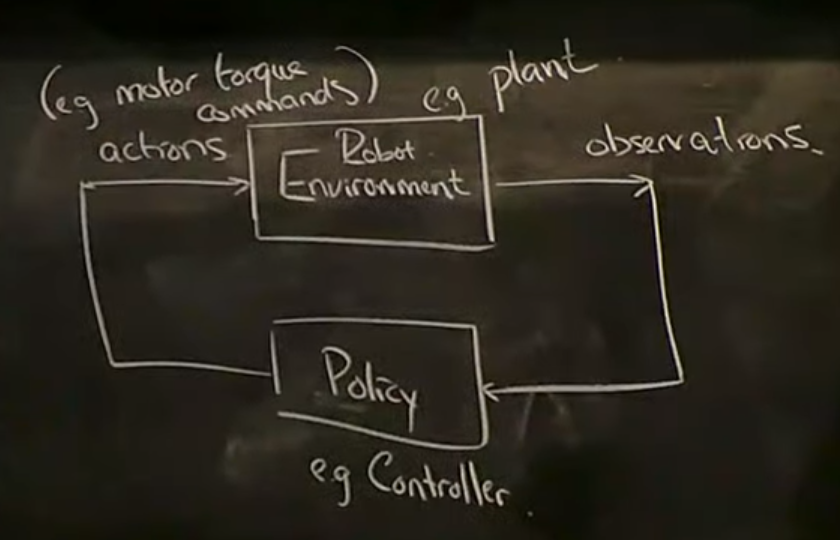 (eg motor torque
commands)
eg plant
actions
Robot
Environment
observations.
Policy
e.g Controller.